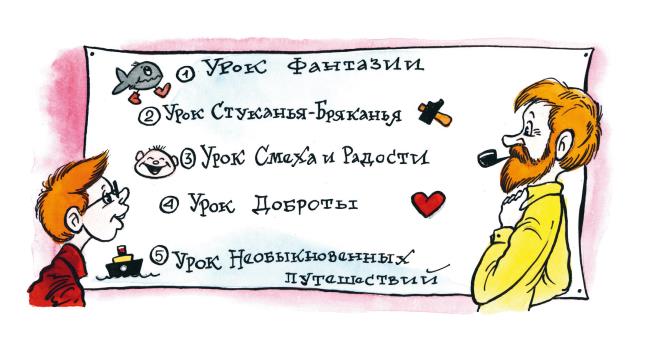 ① Урок Фантазии
② Урок Стуканья-Бряканья
③ Урок Смеха и Радости
④ Урок Доброты
⑤ Урок Необыкновенных
путешествий